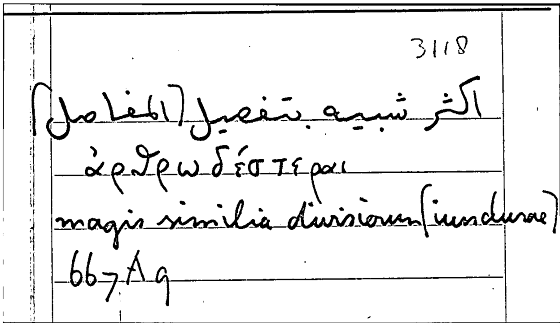 3118
اكثر شبيه بتفصيل (المفاصل)
ἀρθρωδέστεραι
magis similia divisionum (iuncturae)
667 A 9